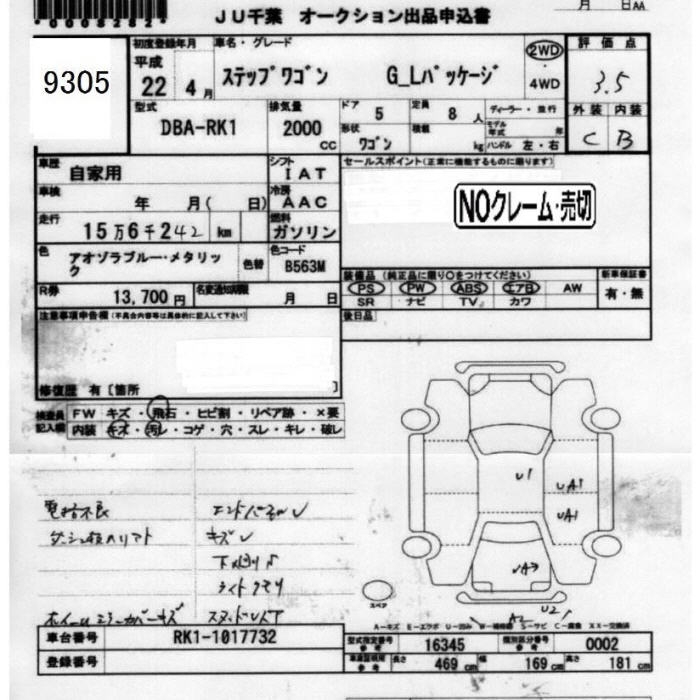 *0008282*
JU千葉 オークション出品申込書
月 日AA
9305
初度登録年月
車名・グレード
2WD
・
4WD
評価点
平成
22 4月
ステップワゴン G_Lパッケージ
3.5
型式
DBA-RK1
排気量
2000
CC
ドア 5
定員 8 人
形状 ワゴン
積載 kg
ディーラー・並行
モデル年式 年
ハンドル 左・右
外装 内装
C B
車歴
自家用
シフト
IAT
セールスポイント(正常に機能するものに限ります)
車検
年 月( 日)
冷房
AAC
NOクレーム・売切
走行
15万6千242 km
燃料
ガソリン
色
アオゾラブルー・メタリック
色替
色コード
B563M
装備品(純正品に限り〇をつけてください)
新車保証書
PS PW ABS エアB AW
SR ナビ TV カワ
有・無
R券
13,700円
名変通知期限
月 日
後日品
注意事項申告欄(不具合内容等は具体的に記入して下さい)
修復歴 有[箇所 ]
検査員
記入欄
FW キズ・飛石・ヒビ割・リペア跡・×要
内装 キズ・汚レ・コゲ・穴・スレ・キレ・破レ
キズ
U1
UA1
UA1
UA3
U2
A2
スペア
車台番号
RK1-1017732
登録番号
型式指定番号
参考
16345
類別区分番号
参考
0002
車庫証明用
参考
長さ 469 cm 幅 169 cm 高さ 181 cm